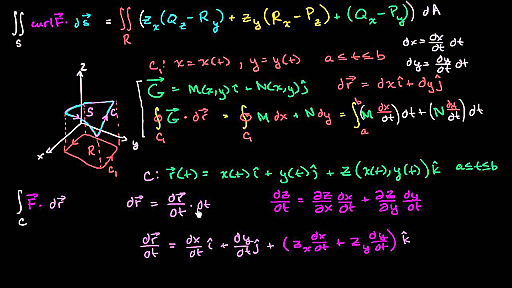 ∬_S curl F⃗ · dS⃗ = ∬_R (z_x(Q_z - R_y) + z_y(R_x - P_z) + (Q_x - P_y)) dA
dx = dx/dt dt
dy = dy/dt dt
C₁: x = x(t), y = y(t) a ≤ t ≤ b
G⃗ = M(x,y) î + N(x,y) ĵ dr⃗ = dx î + dy ĵ
∮_C₁ G⃗ · dr⃗ = ∮_C₁ M dx + N dy = ∫_a^b (M dx/dt) dt + (N dy/dt) dt
z
S
C
y
x
R
C₁
C: r⃗(t) = x(t) î + y(t) ĵ + z(x(t), y(t)) k̂ a ≤ t ≤ b
∫_C F⃗ · dr⃗ dr⃗ = dr⃗/dt · dt dz/dt = ∂z/∂x dx/dt + ∂z/∂y dy/dt
dr⃗/dt = dx/dt î + dy/dt ĵ + (z_x dx/dt + z_y dy/dt) k̂